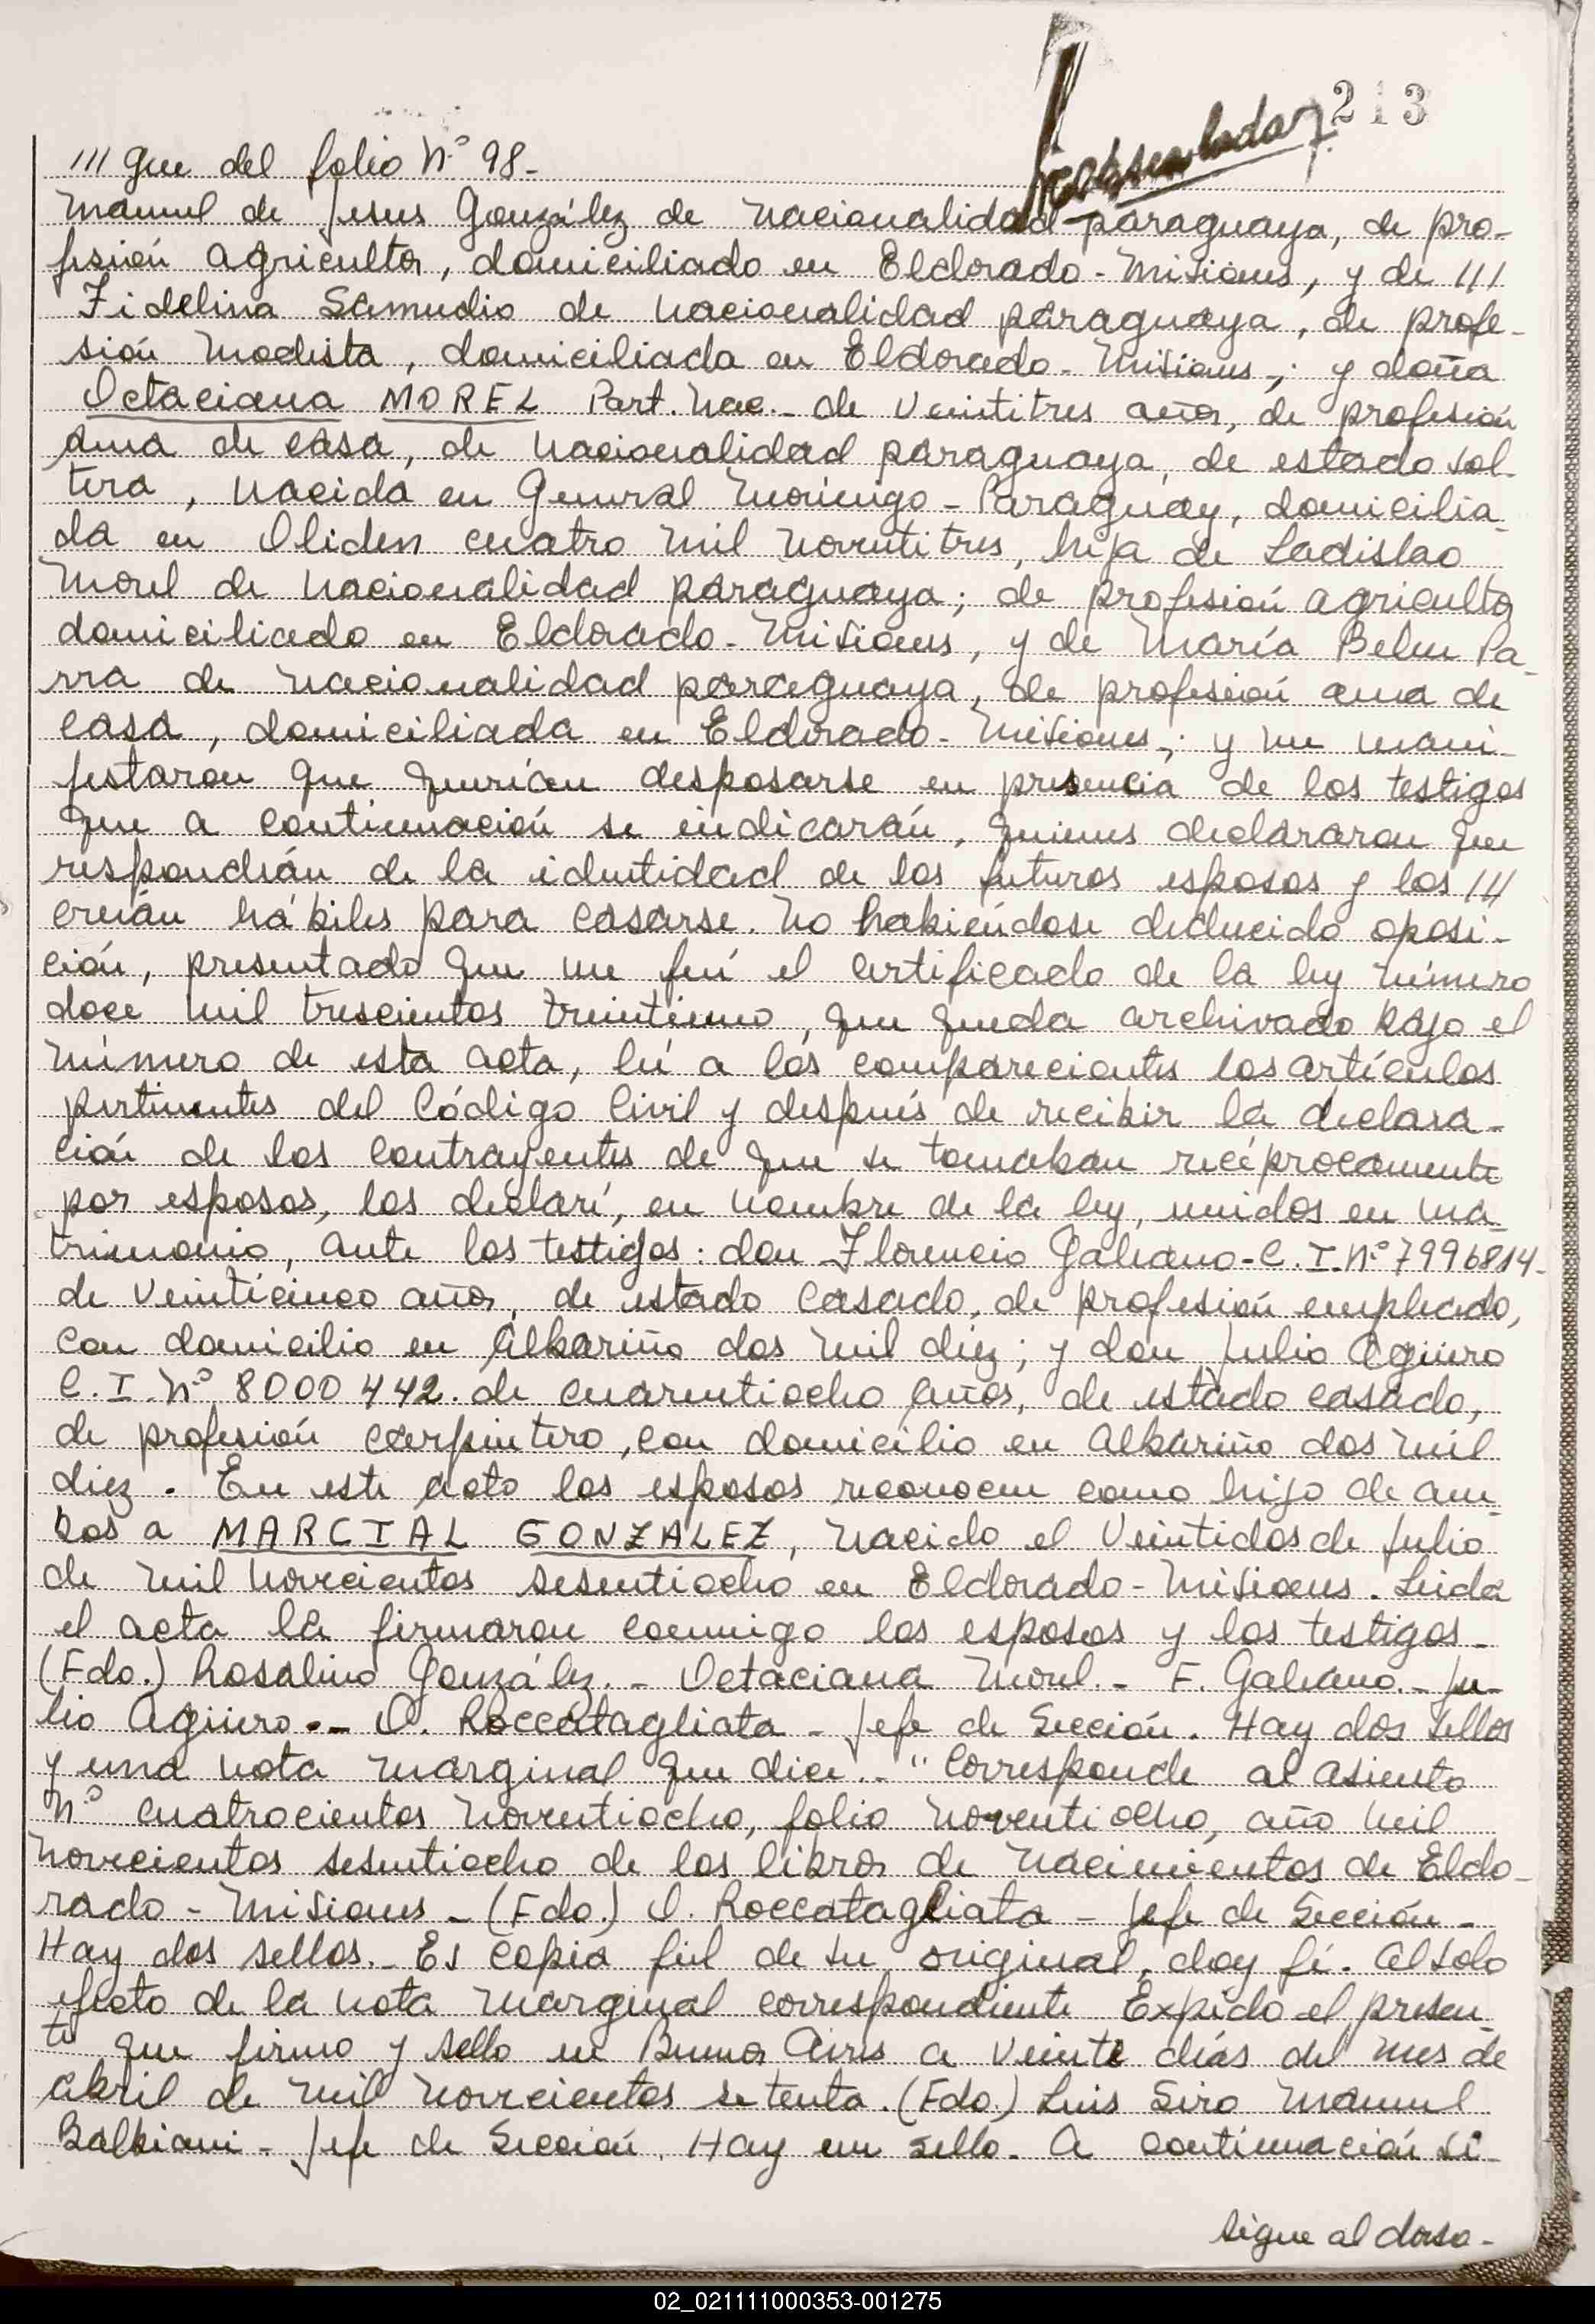 213
/// que del folio N.º 98.-
Manuel de Jesus González de nacionalidad paraguaya, de pro-
fesión agricultor, domiciliado en Eldorado - Misiones, y de ///
Fidelina Samudio de nacionalidad paraguaya, de profe-
sión modista, domiciliada en Eldorado - Misiones -; y doña
Octaciana MOREL Part. Nac. - de veintitres años, de profesión
ama de casa, de nacionalidad paraguaya, de estado sol-
tera, nacida en General Morinigo - Paraguay, domicilia-
da en Oliden cuatro mil noventitres, hija de Ladislao
Morel de nacionalidad paraguaya; de profesión agricultor
domiciliado en Eldorado - Misiones, y de María Belen Pa-
rra de nacionalidad paraguaya, de profesión ama de
casa, domiciliada en Eldorado - Misiones -; y me mani-
festaron que querían desposarse en presencia de los testigos
que a continuación se indicarán, quienes declararon que
respondían de la identidad de los futuros esposos y los ///
creían hábiles para casarse. No habiéndose deducido oposi-
ción, presentado que me fué el certificado de la ley número
doce mil trescientos treintiuno, que queda archivado bajo el
número de esta acta, leí a los comparecientes los artículos
pertinentes del Código Civil y después de recibir la declara-
ción de los contrayentes de que se tomaban recíprocamente
por esposos, los declaré, en nombre de la ley, unidos en ma-
trimonio, ante los testigos: don Florencio Galeano - C. I. Nº 7996814-
de veinticinco años, de estado casado, de profesión empleado,
con domicilio en Albariño dos mil diez; y don Julio Agüero
C. I. Nº 8000442. de cuarentiocho años, de estado casado,
de profesión carpintero, con domicilio en Albariño dos mil
diez. En este acto los esposos reconocen como hijo de am-
bos a MARCIAL GONZALEZ, nacido el veintidos de julio
de mil novecientos sesentiocho en Eldorado - Misiones. Leida
el acta la firmaron conmigo los esposos y los testigos.-
(Fdo.) Rosalino González. - Octaciana Morel. - F. Galeano. - Ju-
lio Agüero. - O. Roccatagliata - Jefe de Sección. Hay dos sellos
y una nota marginal que dice. - " Corresponde al asiento
Nº cuatrocientos noventiocho, folio noventiocho, año mil
novecientos sesentiocho de los libros de nacimientos de Eldo-
rado - Misiones - (Fdo.) O. Roccatagliata - Jefe de Sección -
Hay dos sellos. - Es copia fiel de su original, doy fé. Al solo
efecto de la nota marginal correspondiente Expido el presen-
te que firmo y sello en Buenos Aires a veinte días del mes de
abril de mil novecientos setenta. (Fdo.) Luis Siro Manuel
Balbiani - Jefe de Sección. Hay un sello. A continuación si-
sigue al dorso -
02_021111000353-001275